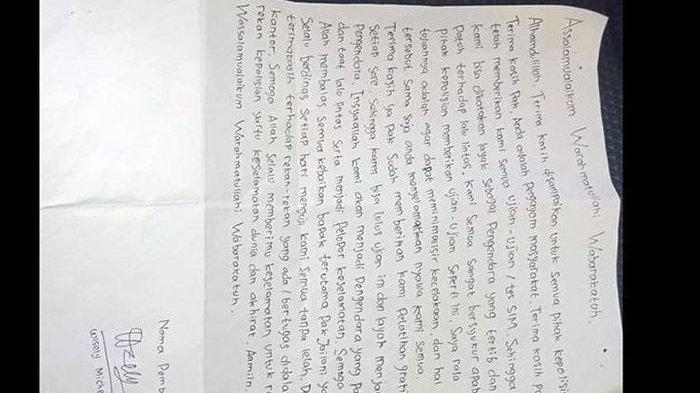 Assalamualaikum Warahmatullahi Wabarakatuh.
Alhamdulillah Terima kasih disampaikan untuk semua pihak kepolisi
Terima kasih Pak Anda adalah pengayom masyarakat. Terima kasih Pa
telah memberikan kami semua ujian-ujian / tes SIM Sehingga
kami bisa dikatakan layak sebagai Pengendara yang tertib dan
Patuh terhadap lalu lintas. Kami semua sangat bersyukur apab
pihak kepolisian memberikan ujian-ujian seperti ini. Saya rasa
tujuannya adalah agar dapat meminimalisir kecelakaan, dan hal
tersebut sama saja anda menyelamatkan nyawa kami semua.
Terima kasih ya pak sudah memberikan kami pelatihan grati
setiap sore, sehingga kami bisa lulus ujian ini dan layak menja
Pengendara. Insyaallah kami akan menjadi Pengendara yang pa
dan taat lalu lintas serta menjadi Pelopor keselamatan, Semoga
Allah membalas semua kebaikan bapak terutama Pak Jailani ya
Selalu berdinas setiap hari menguji kami semua tanpa lelah. D
terimakasih terhadap rekan-rekan yang ada / bertugas didala
kantor. Semoga Allah selalu memberimu keselamatan untuk r
rekan kepolisian yaitu keselamatan dunia dan akhirat. Aamiin.
Wassalamualaikum Warahmatullahi Wabarakatuh.
Nama Pemb
Wisely Miche